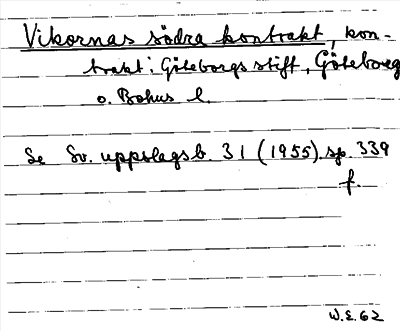 Vikornas södra kontrakt, kon-
trakt i Göteborgs stift, Göteborg
o. Bohus l.
Se Sv. uppslagsb. 31 (1955). sp. 339
f.
W.E. 62